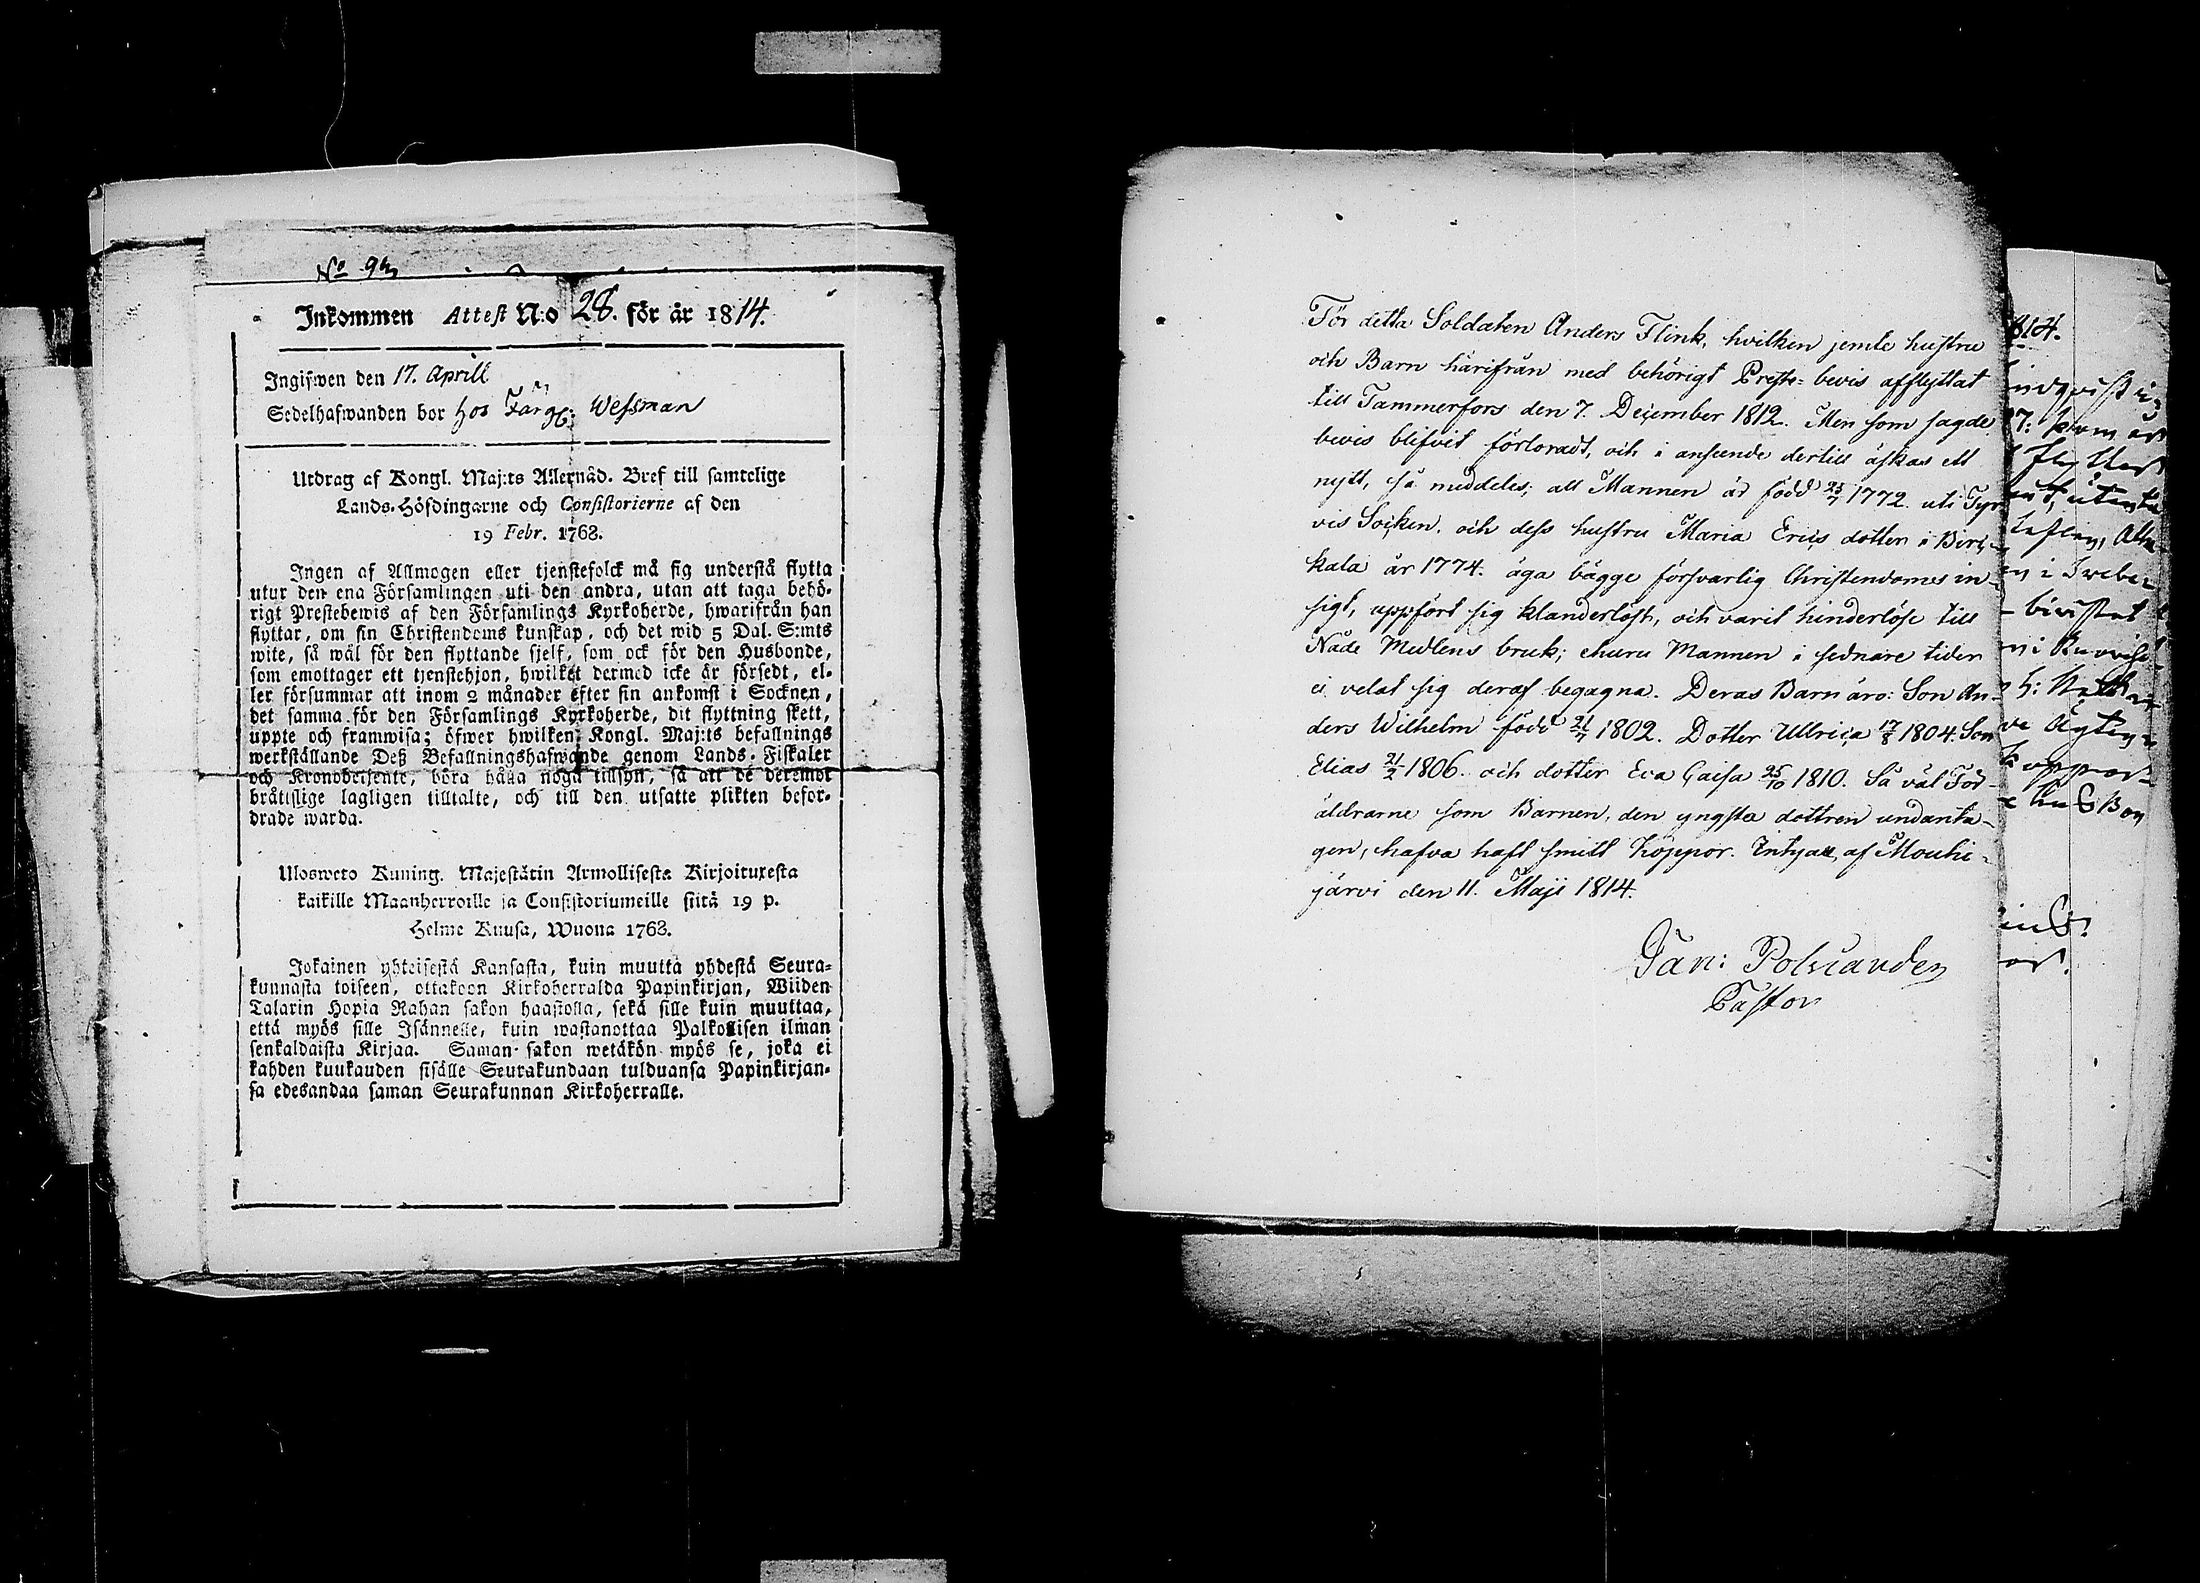 No 94
Inkommen Attest N:o 28. för år 1814.
Ingifwen den 17. Aprill
Sedelhafwanden bor hos Färg: Wessman
Utdrag af Kongl. Maj:ts Allernåd. Bref till samtelige
Lands-Höfdingarne och Consistorierne af den
19 Febr. 1763.
Ingen af Allmogen eller tjenstefolck må sig understå flytta
utur den ena Församlingen uti den andra, utan att taga behö-
rigt Prestebewis af den Församlings Kyrkoherde, hwarifrån han
flyttar, om sin Christendoms kunskap, och det wid 5 Dal. S:mts
wite, så wäl för den flyttande sjelf, som ock för den Husbonde,
som emottager ett tjenstehjon, hwilket dermed icke är försedt, el-
ler försummar att inom 2 månader efter sin ankomst i Socknen,
det samma för den Församlings Kyrkoherde, dit flyttning skett,
uppte och framwisa; öfwer hwilken Kongl. Maj:ts befallnings
werkställande Deß Befallningshafwande genom Lands-Fiskaler
och Kronobetjente, böra hålla noga tillsyn, så att de deremot
bråttslige lagligen tilltalte, och till den utsatte plikten befor-
drade warda.
Uloswetο Kuning. Majestätin Armollisesta Kirjoituxesta
kaikille Maanherroille ja Consistoriumeille siitä 19 p.
Helme Kuusa, Wuona 1763.
Jokainen yhteisestä Kansasta, kuin muutta yhdestä Seura-
kunnasta toiseen, ottakoon Kirkoherralda Papinkirjan, Wiiden
Talarin Hopia Rahan sakon haastolla, sekä sille kuin muuttaa,
että myös sille Isännelle, kuin wastanottaa Palkollisen ilman
senkaldaista Kirjaa. Saman sakon wetäkön myös se, joka ei
kahden kuukauden sisälle Seurakundaan tulduansa Papinkirjan-
sa edesandaa saman Seurakunnan Kirkoherralle.
För detta Soldaten Anders Flink, hvilken jemte hustru
och Barn härifrån med behörigt Preste-bevis afflyttat
till Tammerfors den 7. December 1812. Men som sagde
bevis blifvit förloradt, och i anseende dertill äskas ett
nytt, så meddeles; att Mannen är född 25/7 1772. uti Tyr
vis Socken, och dess hustru Maria Erics dotter i Birk-
kala år 1774. äga bägge försvarlig Christendoms in-
sigt, uppfört sig klanderlöst, och varit hinderlöse till
Nåde Medlens bruk; ehuru Mannen i sednare tider
ei velat sig deraf begagna. Deras Barn äro: Son An-
ders Wilhelm född 21/7 1802. Dotter Ullrica 17/8 1804. Son
Elias 21/2 1806. och dotter Eva Caisa 25/10 1810. Så väl För-
äldrarne som Barnen, den yngsta dottren undanta-
gen, hafva haft smitt Koppor. Intygar, af Mouhi-
järvi den 11. Maji 1814.
Polviander
Pastor
1814.